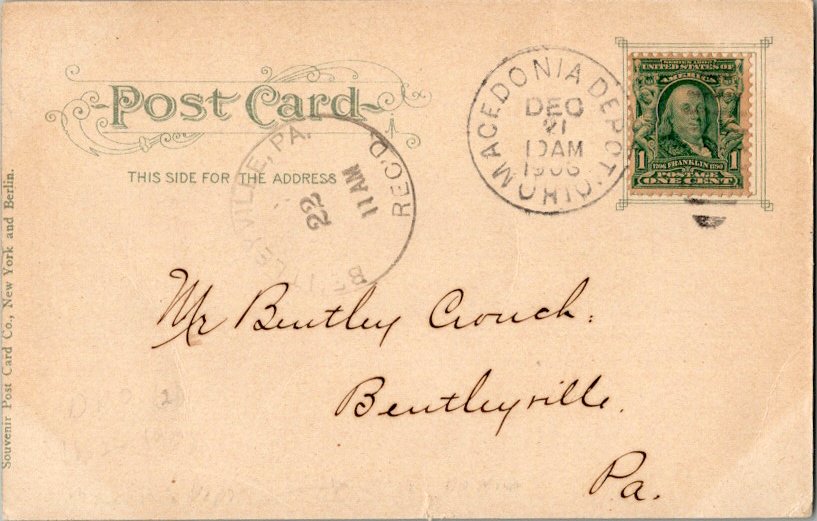 Post Card
THIS SIDE FOR THE ADDRESS
MACEDONIA DEPOT OHIO
DEC
21
10AM
1906
SERIES 1902
UNITED STATES OF
AMERICA
1706 FRANKLIN 1790
1 1
POSTAGE
ONE CENT
BENTLEYVILLE, PA.
REC'D.
22
11 AM
Mr Bentley Crouch.
Bentleyville.
Pa.
Souvenir Post Card Co., New York and Berlin.